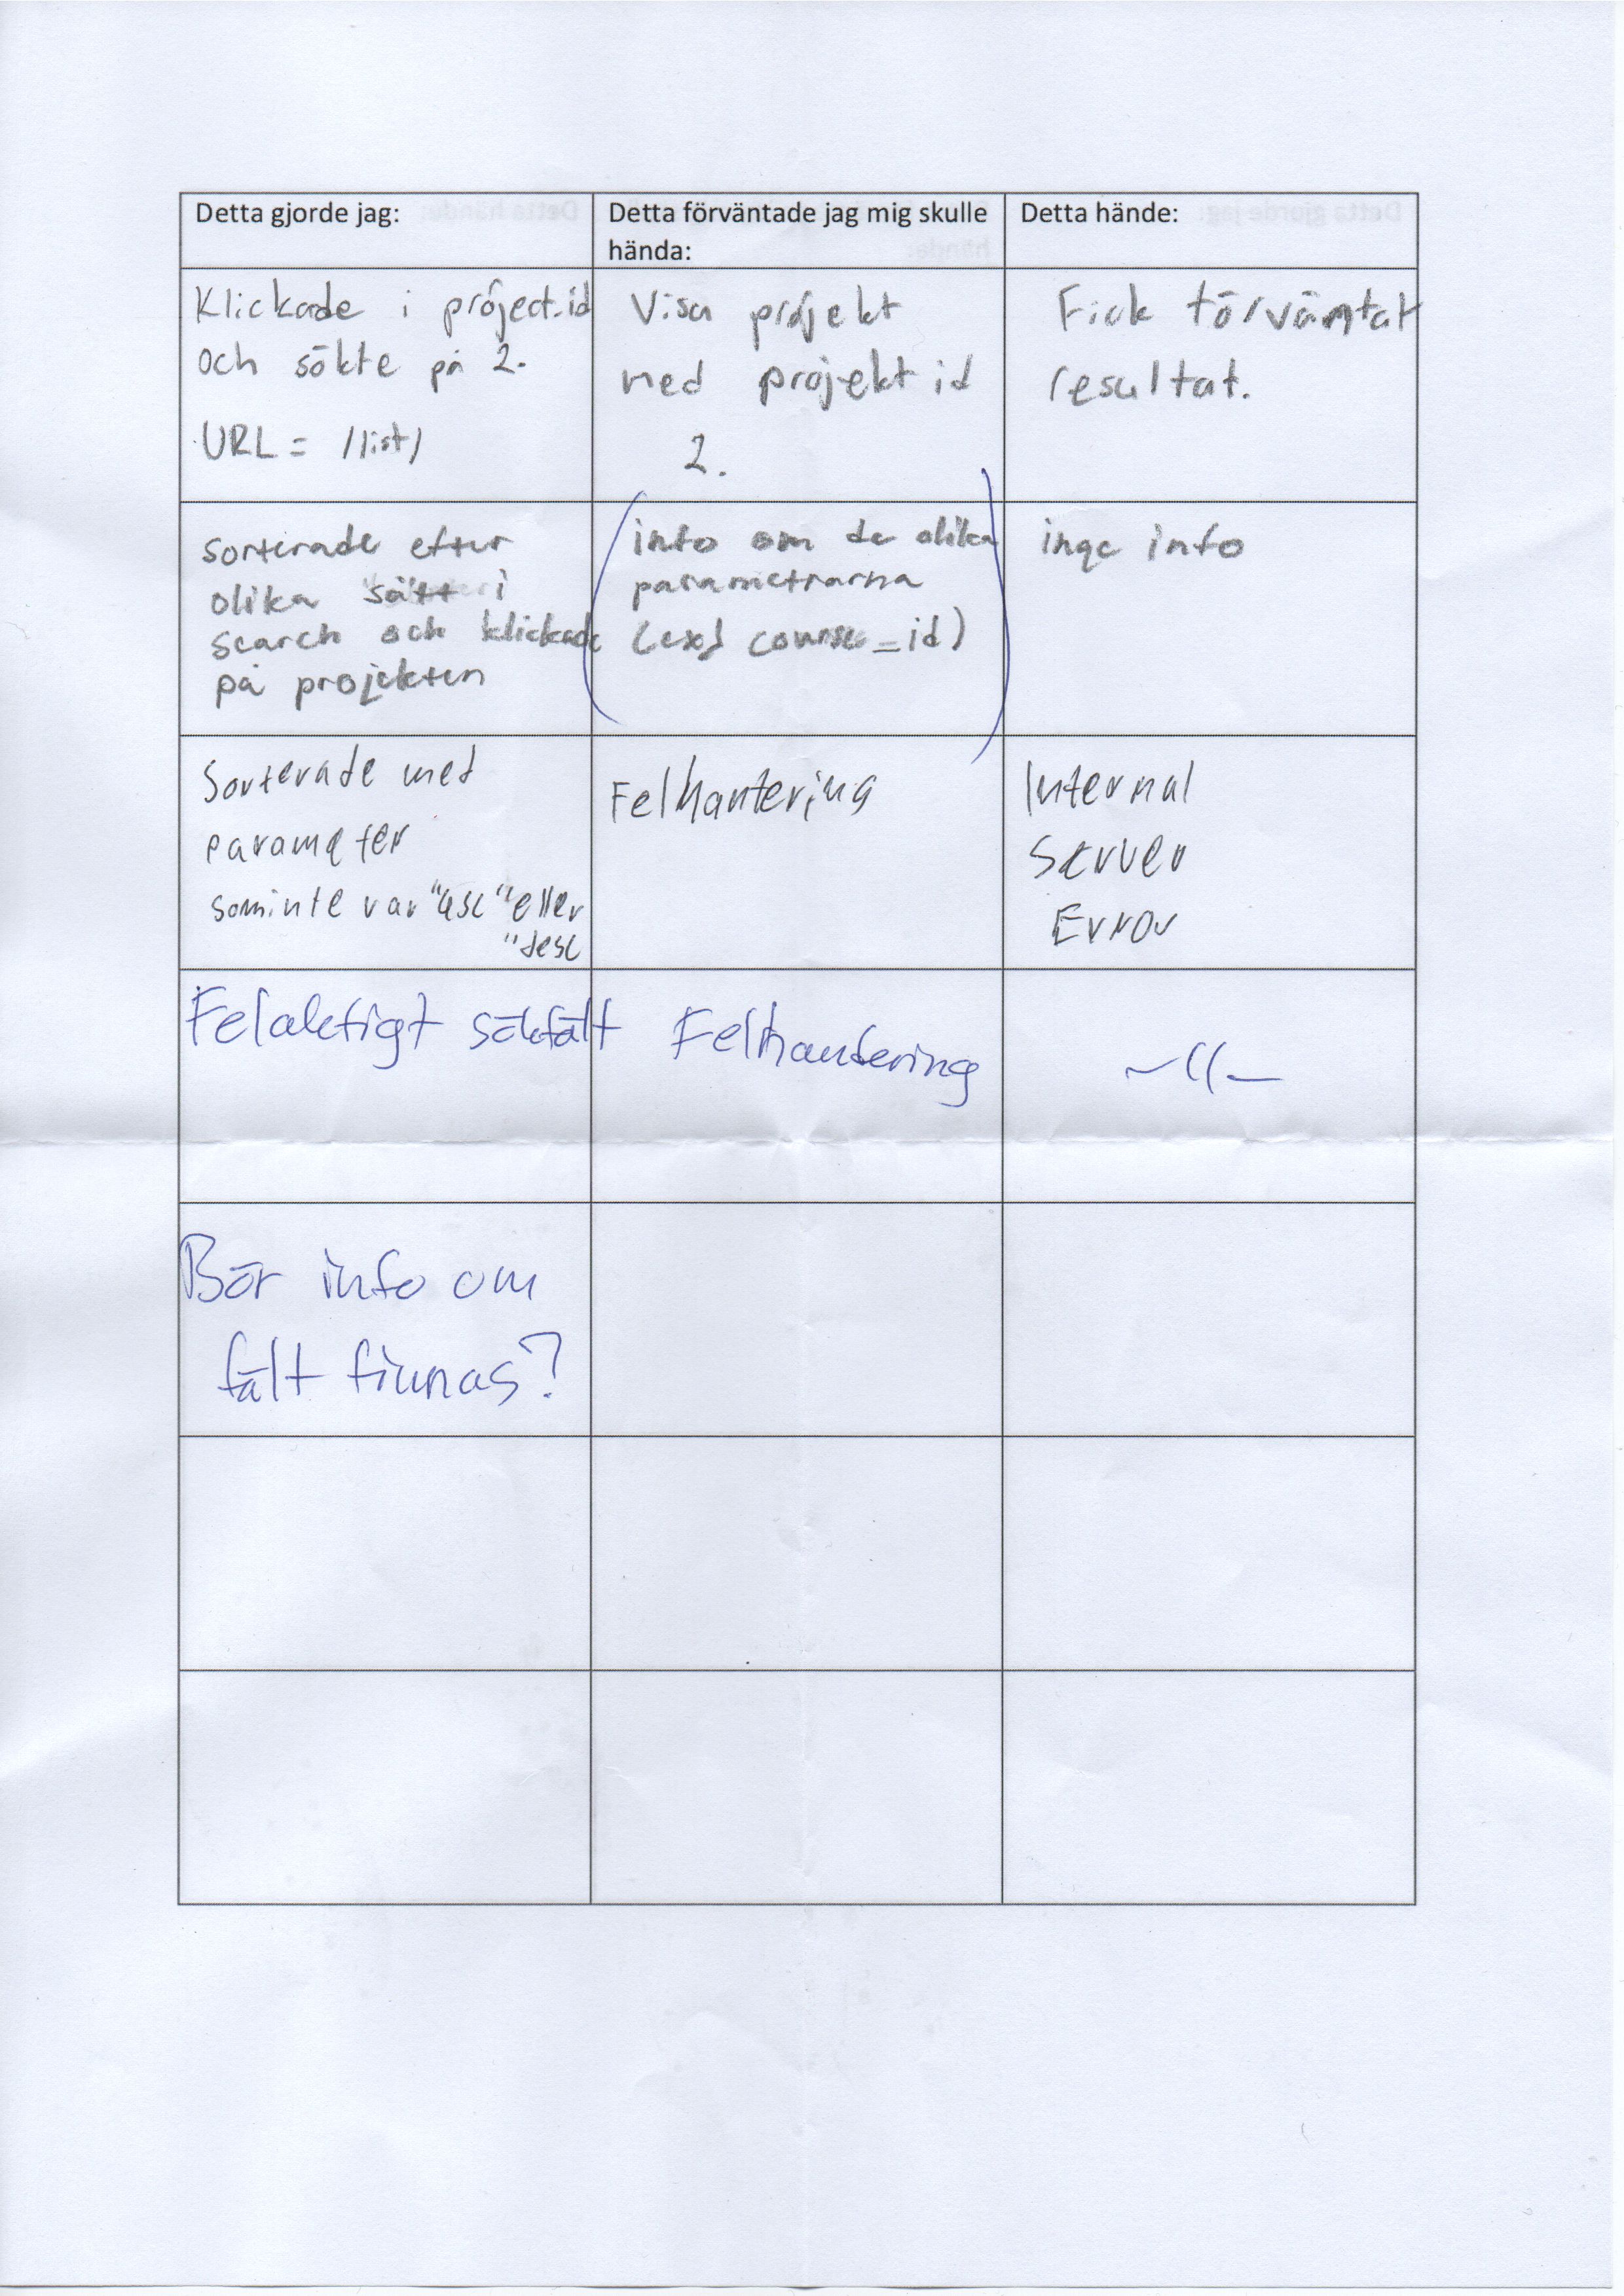 Detta gjorde jag:
Detta förväntade jag mig skulle
hända:
Detta hände:
Klickade i project_id
och sökte på 2.
URL = /list/
Visa projekt
med projekt id
2.
Fick förväntat
resultat.
sorterade efter
olika sätt i
search och klickade
på projekten
info om de olika
parametrarna
(ex) course_id)
inge info
Sorterade med
parameter
som inte var "asc" eller
"desc
Felhantering
Internal
Server
Error
Felaktigt sökfält
Felhantering
-"-
Bör info om
fält finnas?